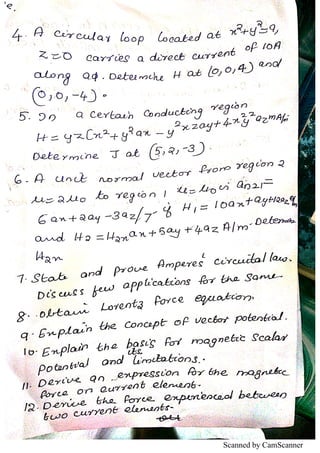 e.
4. A circular loop located at x²+y²=9,
Z=0 carries a direct current of 10A
along aϕ. Determine H at (0,0,4) and
(0,0,-4).
5. In a certain conducting region
H = yz(x²+y²)ax - y²xzay + 4x²y²az mA/m
Determine J at (5,2,-3).
6. A unit normal vector from region 2
μ=2μ0 to region 1 μ=μ0 is an21=
6ax+2ay-3az/7 if H1 = 10ax+ay+12az
and H2 = H2x ax+5ay+4az A/m. Determine
H2x
7. State and prove Amperes' circuital law.
Discuss few applications for the same.
8. Obtain Lorentz force equation.
9. Explain the concept of vector potential.
10. Explain the basis for magnetic scalar
potential and its limitations.
11. Derive an expression for the magnetic
force on current element.
12. Derive the force experienced between
two current elements.
Scanned by CamScanner